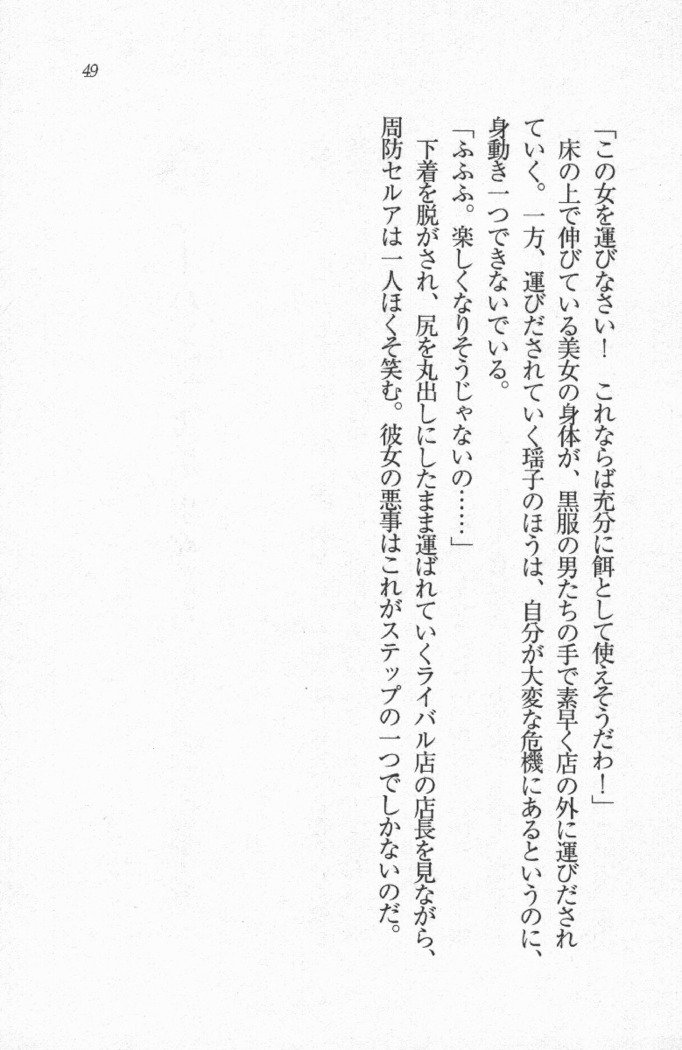 49
「この女を運びなさい！　これならば充分に餌として使えそうだわ！」
　床の上で伸びている美女の身体が、黒服の男たちの手で素早く店の外に運びだされ
ていく。一方、運びだされていく瑶子のほうは、自分が大変な危機にあるというのに、
身動き一つできないでいる。
「ふふふ。楽しくなりそうじゃないの……」
　下着を脱がされ、尻を丸出しにしたまま運ばれていくライバル店の店長を見ながら、
周防セルアは一人ほくそ笑む。彼女の悪事はこれがステップの一つでしかないのだ。